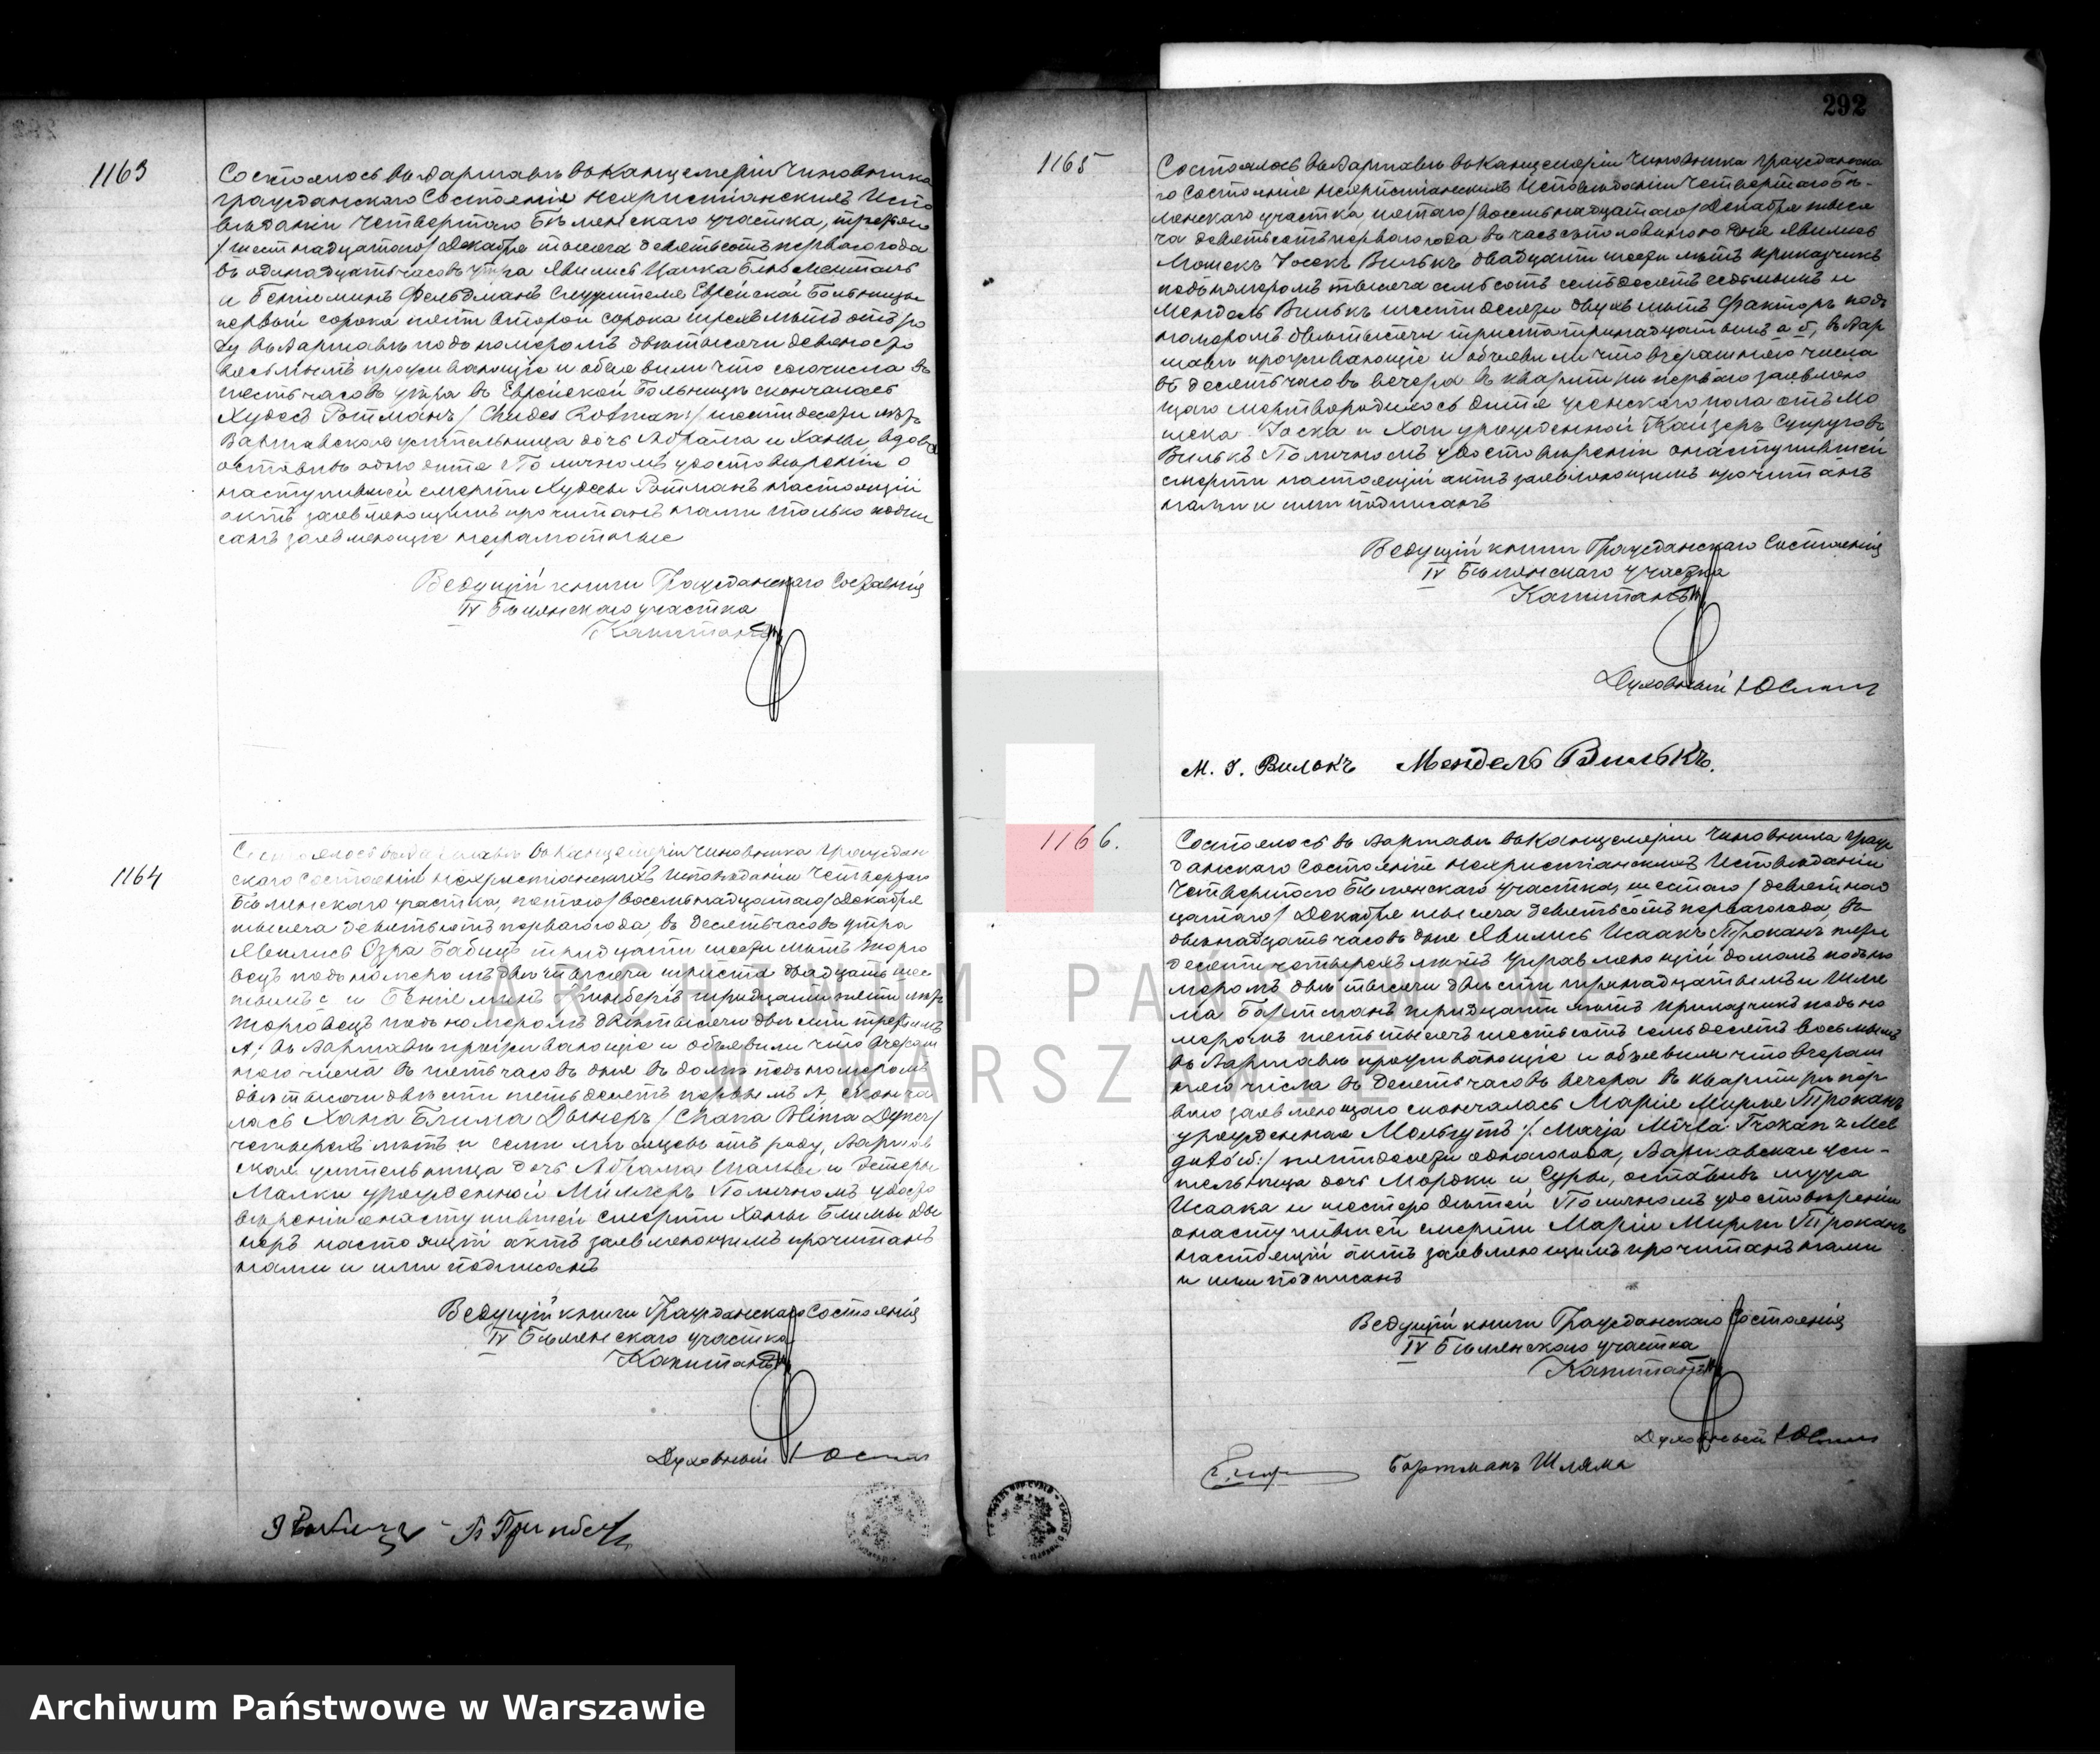 292
1163
Состоялось въ Варшавѣ въ Канцелярiи Чиновника
гражданскаго Состоянiя нехристiанскихъ Испо
вѣданiй Четвертаго Бѣлянскаго участка, третьяго
/шестнадцатаго/ Декабря тысяча девятьсотъ перваго года
въ одинадцать часовъ утра Явились Цалка Блюменталь
и Бенiаминъ Фельдманъ Служители Еврейской Больницы
первый сорока пяти второй сорока трехъ лѣтъ отъ ро
ду въ Варшавѣ подъ номеромъ двѣ тысячи девяносто
восьмымъ проживающiе и объявили что сего числа въ
шесть часовъ утра въ Еврейской Больницѣ скончалась
Худесъ Ротманъ /Chudes Rotman:/ шестидесяти лѣтъ
Варшавская жительница дочь Абрама и Ханы, вдова
оставивъ одно дитя По личномъ удостовѣренiи о
наступившей смерти Худесы Ротманъ настоящiй
актъ заявляющимъ прочитанъ нами только подпи
санъ заявляющiе неграмотные
Ведущiй книги Гражданскаго Состоянiя
IV Бѣлянскаго участка
Капитанъ
1164
Состоялось въ Варшавѣ въ Канцелярiи Чиновника Граждан
скаго Состоянiя нехристiанскихъ Исповѣданiй Четвертаго
Бѣлянскаго участка, пятаго/восемьнадцатаго/Декабря
тысяча девятьсотъ перваго года, въ десять часовъ утра
Явились Озра Бабицъ тридцати шести лѣтъ торго
вецъ подъ номеромъ двѣ тысячи триста двадцать шес
тымъ с и Бенiаминъ Гринбергъ тридцати пяти лѣтъ
торговецъ подъ номеромъ двѣ тысячи двѣсти третьимъ
А; въ Варшавѣ проживающiе и объявили что вчераш
няго числа въ пять часовъ дня въ домѣ подъ номеромъ
двѣ тысячи двѣсти пятьдесятъ первымъ А, сконча
лась Хана Блима Дынеръ /Chana Blima Dyner/
четырехъ лѣтъ и семи мѣсяцевъ отъ роду, Варшав
ская жительница дочь Абрама Шальвы и Эстеры
Малки урожденной Миллеръ По личномъ удосто
вѣренiи о наступившей смерти Ханы Блимы Ды
неръ настоящiй актъ заявляющимъ прочитанъ
нами и ими подписанъ
Ведущiй книги Гражданскаго Состоянiя
IV Бѣлянскаго участка
Капитанъ
Духовный
1165
Состоялось въ Варшавѣ въ Канцелярiи Чиновника гражданска
го Состоянiя нехристiанскихъ Исповѣданiй Четвертаго Бѣ-
лянскаго участка, пятаго/восемьнадцатаго/Декабря тыся
ча девятьсотъ перваго года, въ часъ съ половиною дня Явились
Мошекъ Iосекъ Вилькъ двадцати шести лѣтъ приказчикъ
подъ номеромъ тысяча семьсотъ семьдесятъ седьмымъ и
Мендель Вилькъ шестидесяти двухъ лѣтъ Факторъ подъ
номеромъ двѣ тысячи триста тринадцатымъ а б, въ Вар
шавѣ проживающiе и объявили что вчерашняго числа
въ десять часовъ вечера въ квартирѣ перваго заявляю
щаго мертвородилось дитя женскаго пола отъ Мо
шека Iоска и Хаи урожденной Кайзеръ Супруговъ
Вилькъ По личномъ удостовѣренiи о наступившей
смерти настоящiй актъ заявляющимъ прочитанъ
нами и ими подписанъ
Ведущiй книги Гражданскаго Состоянiя
IV Бѣлянскаго участка
Капитанъ
Духовный
М. I. Вилькъ Мендель Вилькъ.
1166.
Состоялось въ Варшавѣ въ Канцелярiи Чиновника Граж
данскаго Состоянiя нехристiанскихъ Исповѣданiй
Четвертаго Бѣлянскаго участка, шестаго/девятнад
цатаго/ Декабря тысяча девятьсотъ перваго года, въ
двѣнадцать часовъ дня Явились Исаакъ Троканъ пяти
десяти четырехъ лѣтъ Управляющiй домомъ подъ но
меромъ двѣ тысячи двѣсти тринадцатымъ и Шля
ма Бортманъ тридцати лѣтъ приказчикъ подъ но
меромъ пять тысячъ шестьсотъ семьдесятъ восьмымъ
въ Варшавѣ проживающiе и объявили что вчераш
няго числа въ десять часовъ вечера въ квартирѣ пер
ваго заявляющаго скончалась Марiя Мирля Троканъ
урожденная :/ Marja Mirla Trokan z
:/ пятидесяти одного года, Варшавская жи-
тельница дочь Мордки и Суры, оставивъ мужа
Исаака и шестеро дѣтей По личномъ удостовѣренiи
о наступившей смерти Марiи Мирли Троканъ
настоящiй актъ заявляющимъ прочитанъ нами
и ими подписанъ
Ведущiй книги Гражданскаго Состоянiя
IV Бѣлянскаго участка
Капитанъ
Духовный
Бортманъ Шляма
ARCHIWUM PAŃSTWOWE
W WARSZAWIE
Archiwum Państwowe w Warszawie